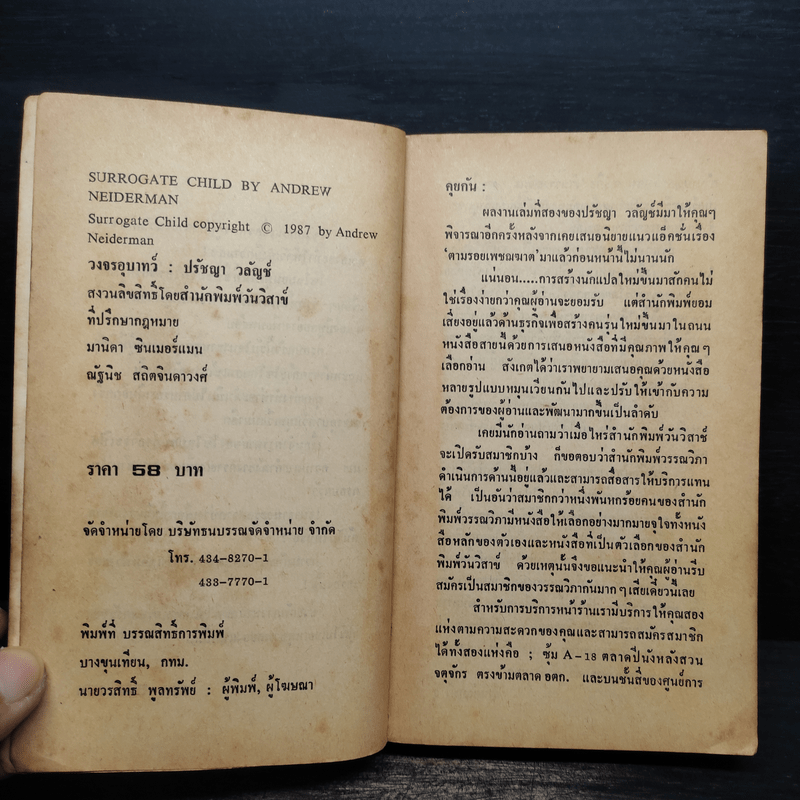 SURROGATE CHILD BY ANDREW
NEIDERMAN
Surrogate Child copyright © 1987 by Andrew
Neiderman
วงจรอุบาทว์ : ปรัชญา วลัญช์
สงวนลิขสิทธิ์โดยสำนักพิมพ์วันวิสาข์
ที่ปรึกษากฎหมาย
มานิดา ซินเมอร์แมน
ณัฐนิช สถิตจินดาวงศ์
ราคา 58 บาท
จัดจำหน่ายโดย บริษัทธนบรรณจัดจำหน่าย จำกัด
โทร. 434-8270-1
433-7770-1
พิมพ์ที่ บรรณสิทธิ์การพิมพ์
บางขุนเทียน, กทม.
นายวรสิทธิ์ พูลทรัพย์ : ผู้พิมพ์, ผู้โฆษณา
คุยกัน :
ผลงานเล่มที่สองของปรัชญา วลัญช์มีมาให้คุณๆ
พิจารณาอีกครั้งหลังจากเคยเสนอนิยายแนวแอ็คชั่นเรื่อง
'ตามรอยเพชฌฆาต'มาแล้วก่อนหน้านี้ไม่นานนัก
แน่นอน.....การสร้างนักแปลใหม่ขึ้นมาสักคนไม่
ใช่เรื่องง่ายกว่าคุณผู้อ่านจะยอมรับ แต่สำนักพิมพ์ยอม
เสี่ยงอยู่แล้วด้านธุรกิจเพื่อสร้างคนรุ่นใหม่ขึ้นมาในถนน
หนังสือสายนี้ด้วยการเสนอหนังสือที่มีคุณภาพให้คุณๆ
เลือกอ่าน สังเกตได้ว่าเราพยายามเสนอคุณด้วยหนังสือ
หลายรูปแบบหมุนเวียนกันไปและปรับให้เข้ากับความ
ต้องการของผู้อ่านและพัฒนามากขึ้นเป็นลำดับ
เคยมีนักอ่านถามว่าเมื่อไหร่สำนักพิมพ์วันวิสาข์
จะเปิดรับสมาชิกบ้าง ก็ขอตอบว่าสำนักพิมพ์วรรณวิภา
ดำเนินการด้านนี้อยู่แล้วและสามารถสื่อสารให้บริการแทน
ได้ เป็นอันว่าสมาชิกกว่าหนึ่งพันหกร้อยคนของสำนัก
พิมพ์วรรณวิภามีหนังสือให้เลือกอย่างมากมายจุใจทั้งหนัง
สือหลักของตัวเองและหนังสือที่เป็นตัวเลือกของสำนัก
พิมพ์วันวิสาข์ ด้วยเหตุนั้นจึงขอแนะนำให้คุณผู้อ่านรีบ
สมัครเป็นสมาชิกของวรรณวิภากันมากๆเสียเดี๋ยวนี้เลย
สำหรับการบริการหน้าร้านเรามีบริการให้คุณสอง
แห่งตามความสะดวกของคุณและสามารถสมัครสมาชิก
ได้ทั้งสองแห่งคือ ; ซุ้ม A-18 ตลาดปีนังหลังสวน
จตุจักร ตรงข้ามตลาด อตก. และบนชั้นสี่ของศูนย์การ